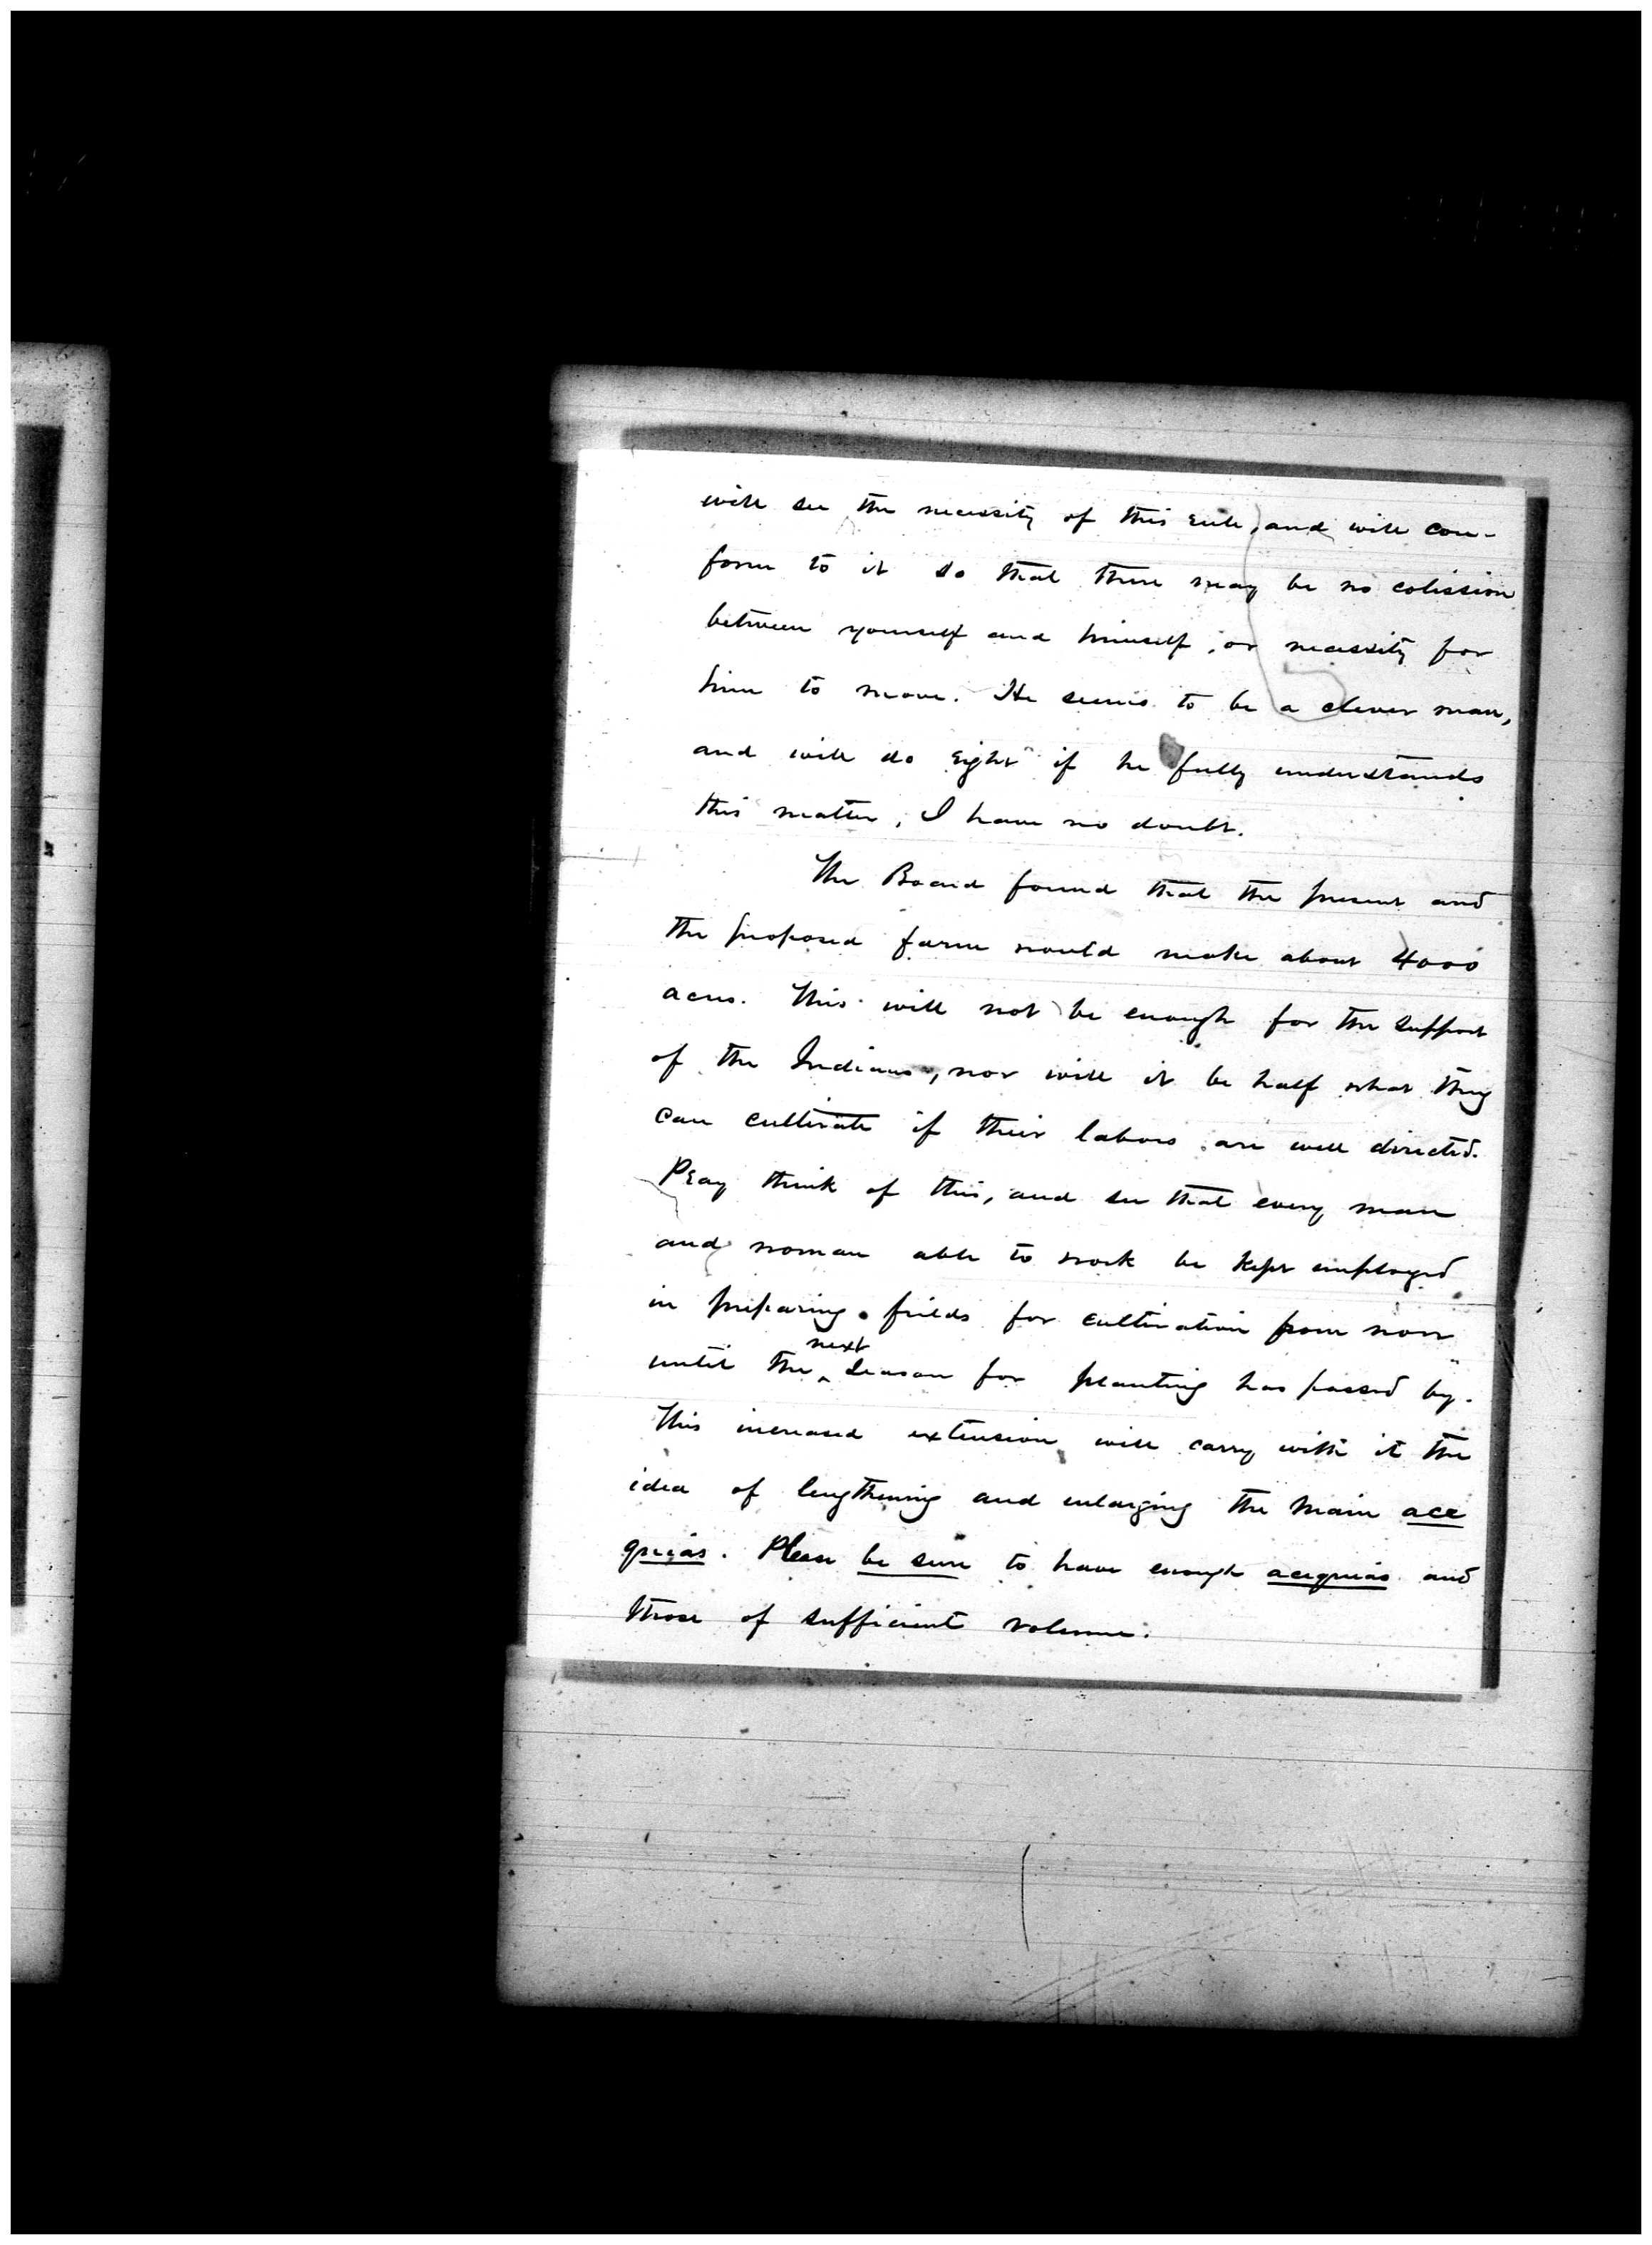 will see the necessity of this rule, and will con-
form to it so that there may be no colission
between yourself and himself, or necessity for
him to move. He seems to be a clever man,
and will do right if he fully understands
this matter, I have no doubt.
The Board found that the present and
the proposed farm would make about 4000
acres. This will not be enough for the support
of the Indians, nor will it be half what they
can cultivate if their labors are well directed.
Pray think of this, and see that every man
and woman able to work be kept employed
in preparing fields for cultivation from now
until the next season for planting has passed by.
This increased extension will carry with it the
idea of lengthening and enlarging the main ace
quias. Please be sure to have enough acequias and
those of sufficient volume.